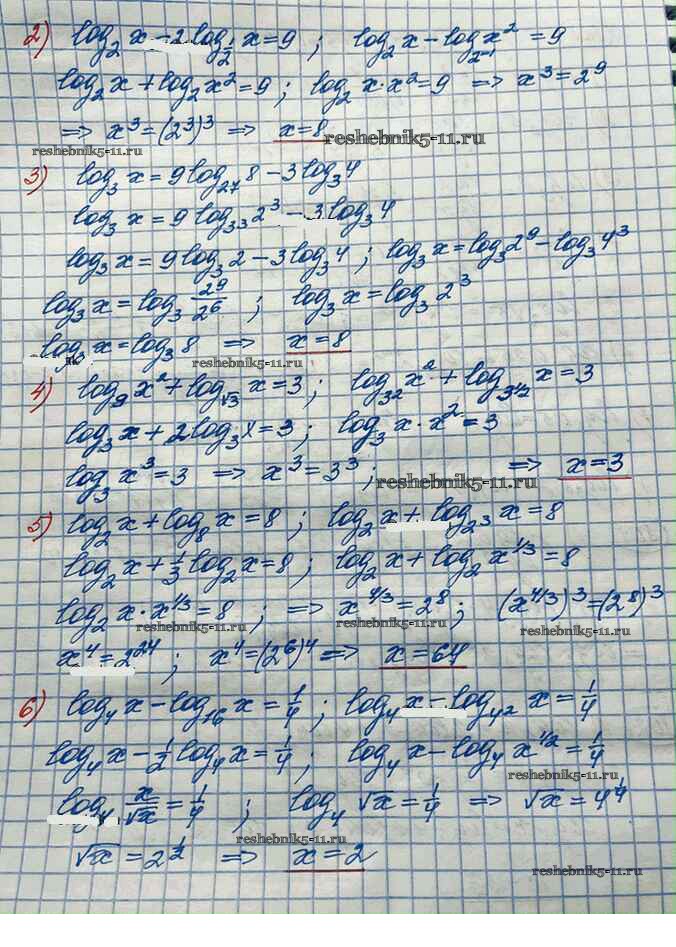 2) log₂ x - 2 log_{1/2} x = 9 ; log₂ x - log_{2⁻¹} x² = 9
log₂ x + log₂ x² = 9 ; log₂ x · x² = 9 ⇒ x³ = 2⁹
⇒ x³ = (2³)³ ⇒ x = 8
reshebnik5-11.ru
reshebnik5-11.ru
3) log₃ x = 9 log₂₇ 8 - 3 log₃ 4
reshebnik5-11.ru
log₃ x = 9 log_{3³} 2³ - 3 log₃ 4
log₃ x = 9 log₃ 2 - 3 log₃ 4 ; log₃ x = log₃ 2⁹ - log₃ 4³
log₃ x = log₃ 2⁹/2⁶ ; log₃ x = log₃ 2³
log₃ x = log₃ 8 ⇒ x = 8
reshebnik5-11.ru
4) log₉ x² + log_{√3} x = 3 ; log_{3²} x² + log_{3^{1/2}} x = 3
log₃ x + 2 log₃ x = 3 ; log₃ x · x² = 3
log₃ x³ = 3 ⇒ x³ = 3³ ; ⇒ x = 3
reshebnik5-11.ru
5) log₂ x + log₈ x = 8 ; log₂ x + log_{2³} x = 8
log₂ x + 1/3 log₂ x = 8 ; log₂ x + log₂ x^{1/3} = 8
log₂ x · x^{1/3} = 8 ; ⇒ x^{4/3} = 2⁸ ; (x^{4/3})³ = (2⁸)³
reshebnik5-11.ru
reshebnik5-11.ru
reshebnik5-11.ru
x⁴ = 2²⁴ ; x⁴ = (2⁶)⁴ ⇒ x = 64
6) log₄ x - log₁₆ x = 1/4 ; log₄ x - log_{4²} x = 1/4
log₄ x - 1/2 log₄ x = 1/4 ; log₄ x - log₄ x^{1/2} = 1/4
reshebnik5-11.ru
log₄ x/√x = 1/4 ; log₄ √x = 1/4 ⇒ √x = 4^{1/4}
reshebnik5-11.ru
√x = 2^{1/2} ⇒ x = 2
reshebnik5-11.ru